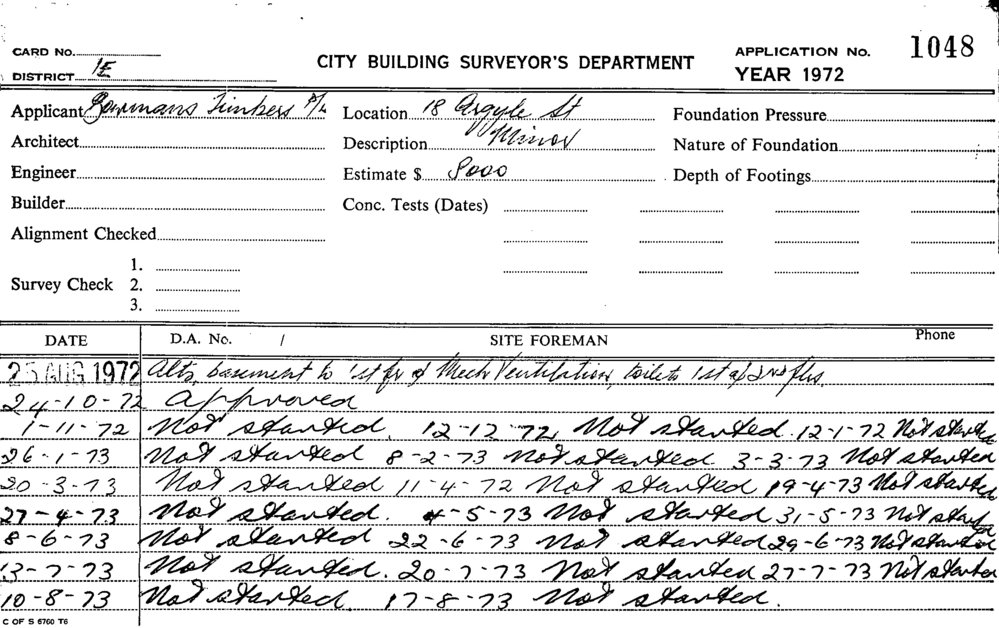 CARD No.
DISTRICT 1E
CITY BUILDING SURVEYOR'S DEPARTMENT
APPLICATION No. 1048
YEAR 1972
Applicant Bowmans Timbers P/L Location 18 Argyle St Foundation Pressure
Architect Description Minor Nature of Foundation
Engineer Estimate $ 8000 Depth of Footings
Builder Conc. Tests (Dates)
Alignment Checked
1.
Survey Check 2.
3.
DATE D.A. No. / SITE FOREMAN Phone
25 AUG 1972 Alts, basement to 1st flr & Mech Ventilation, toilets 1st & 2nd flrs.
24-10-72 Approved
1-11-72 Not started. 12-12-72, Not started. 12-1-72 Not started
26-1-73 Not started 8-2-73 Not started 3-3-73 Not started
20-3-73 Not started 11-4-72 Not started 19-4-73 Not started
27-4-73 Not started. 4-5-73 Not started 31-5-73 Not started
8-6-73 Not started 22-6-73 Not started 29-6-73 Not started
13-7-73 Not started. 20-7-73 Not started 27-7-73 Not started
10-8-73 Not started. 17-8-73 Not started.
C OF S 6760 T6